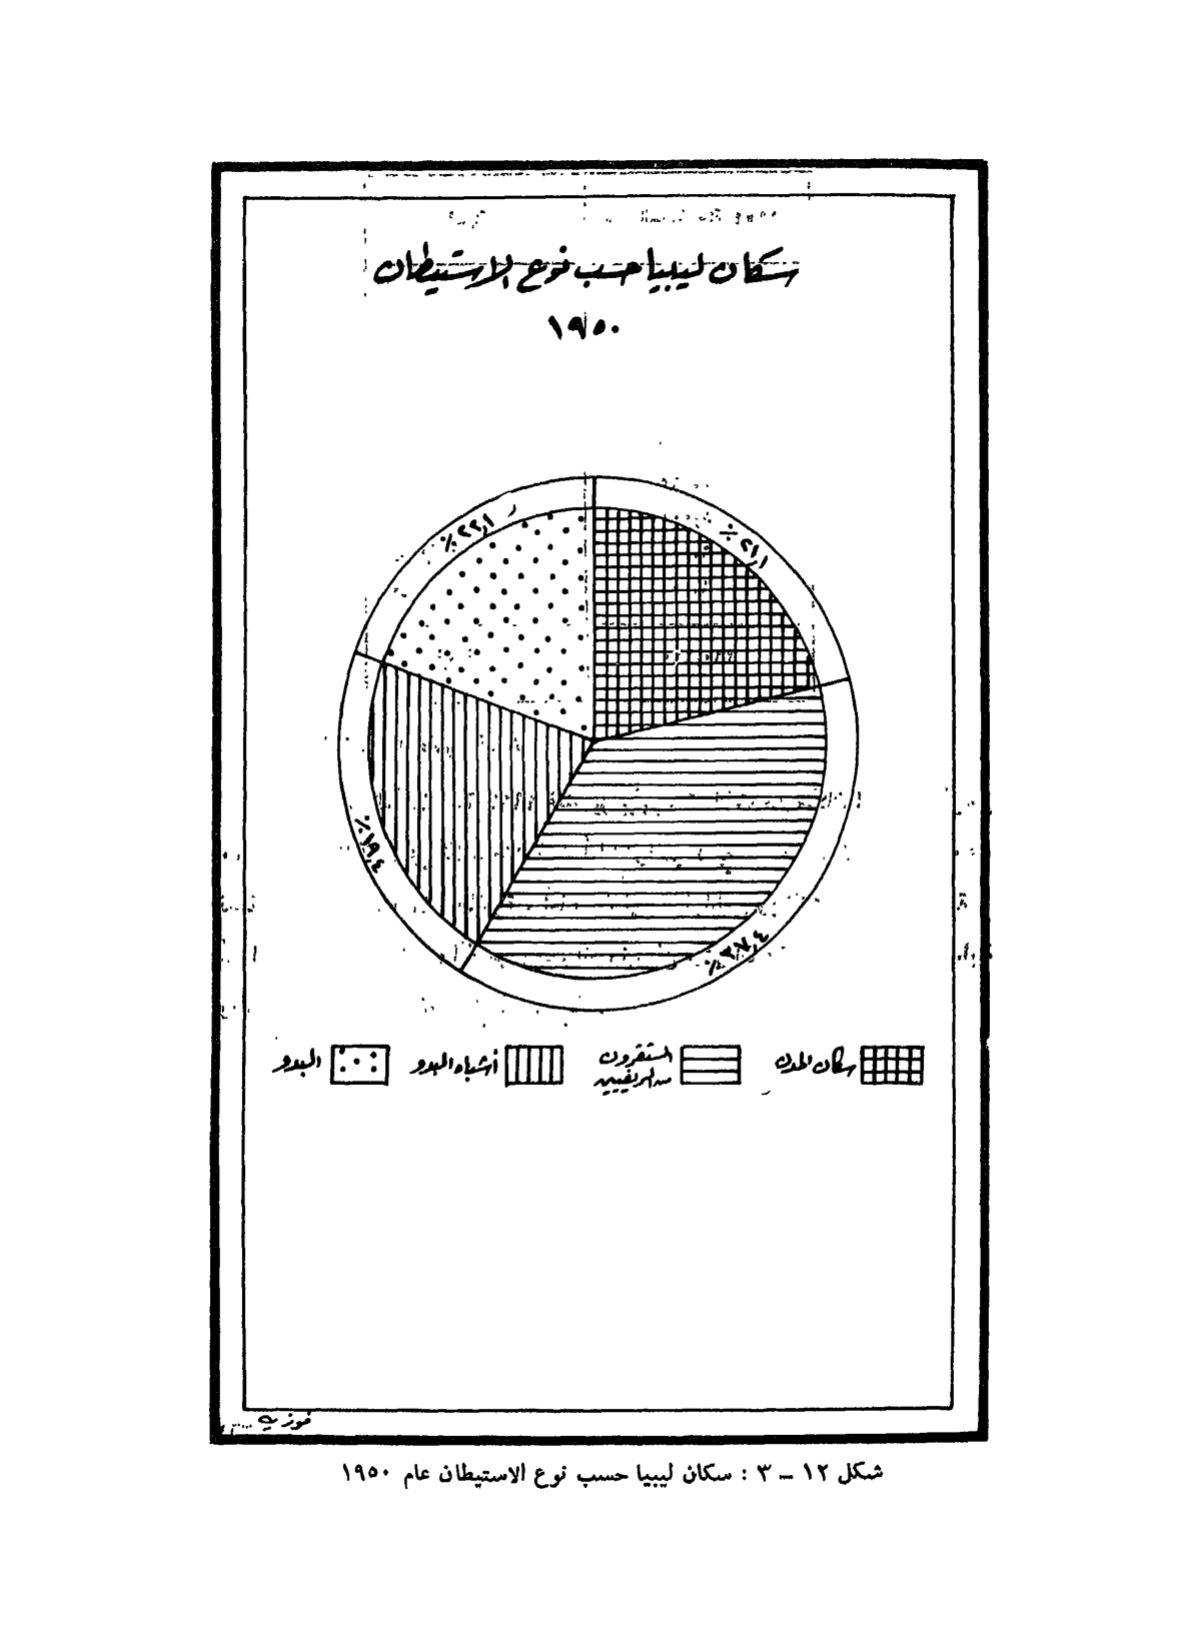 سكان ليبيا حسب نوع الاستيطان
١٩٥٠
٢١,١ ٪
٢٢,١ ٪
١٩,٤ ٪
٣٧,٤ ٪
سكان المدن
المستقرون
من الريفيين
أشباه البدو
البدو
فوزيه
شكل ١٢ – ٣ : سكان ليبيا حسب نوع الاستيطان عام ١٩٥٠